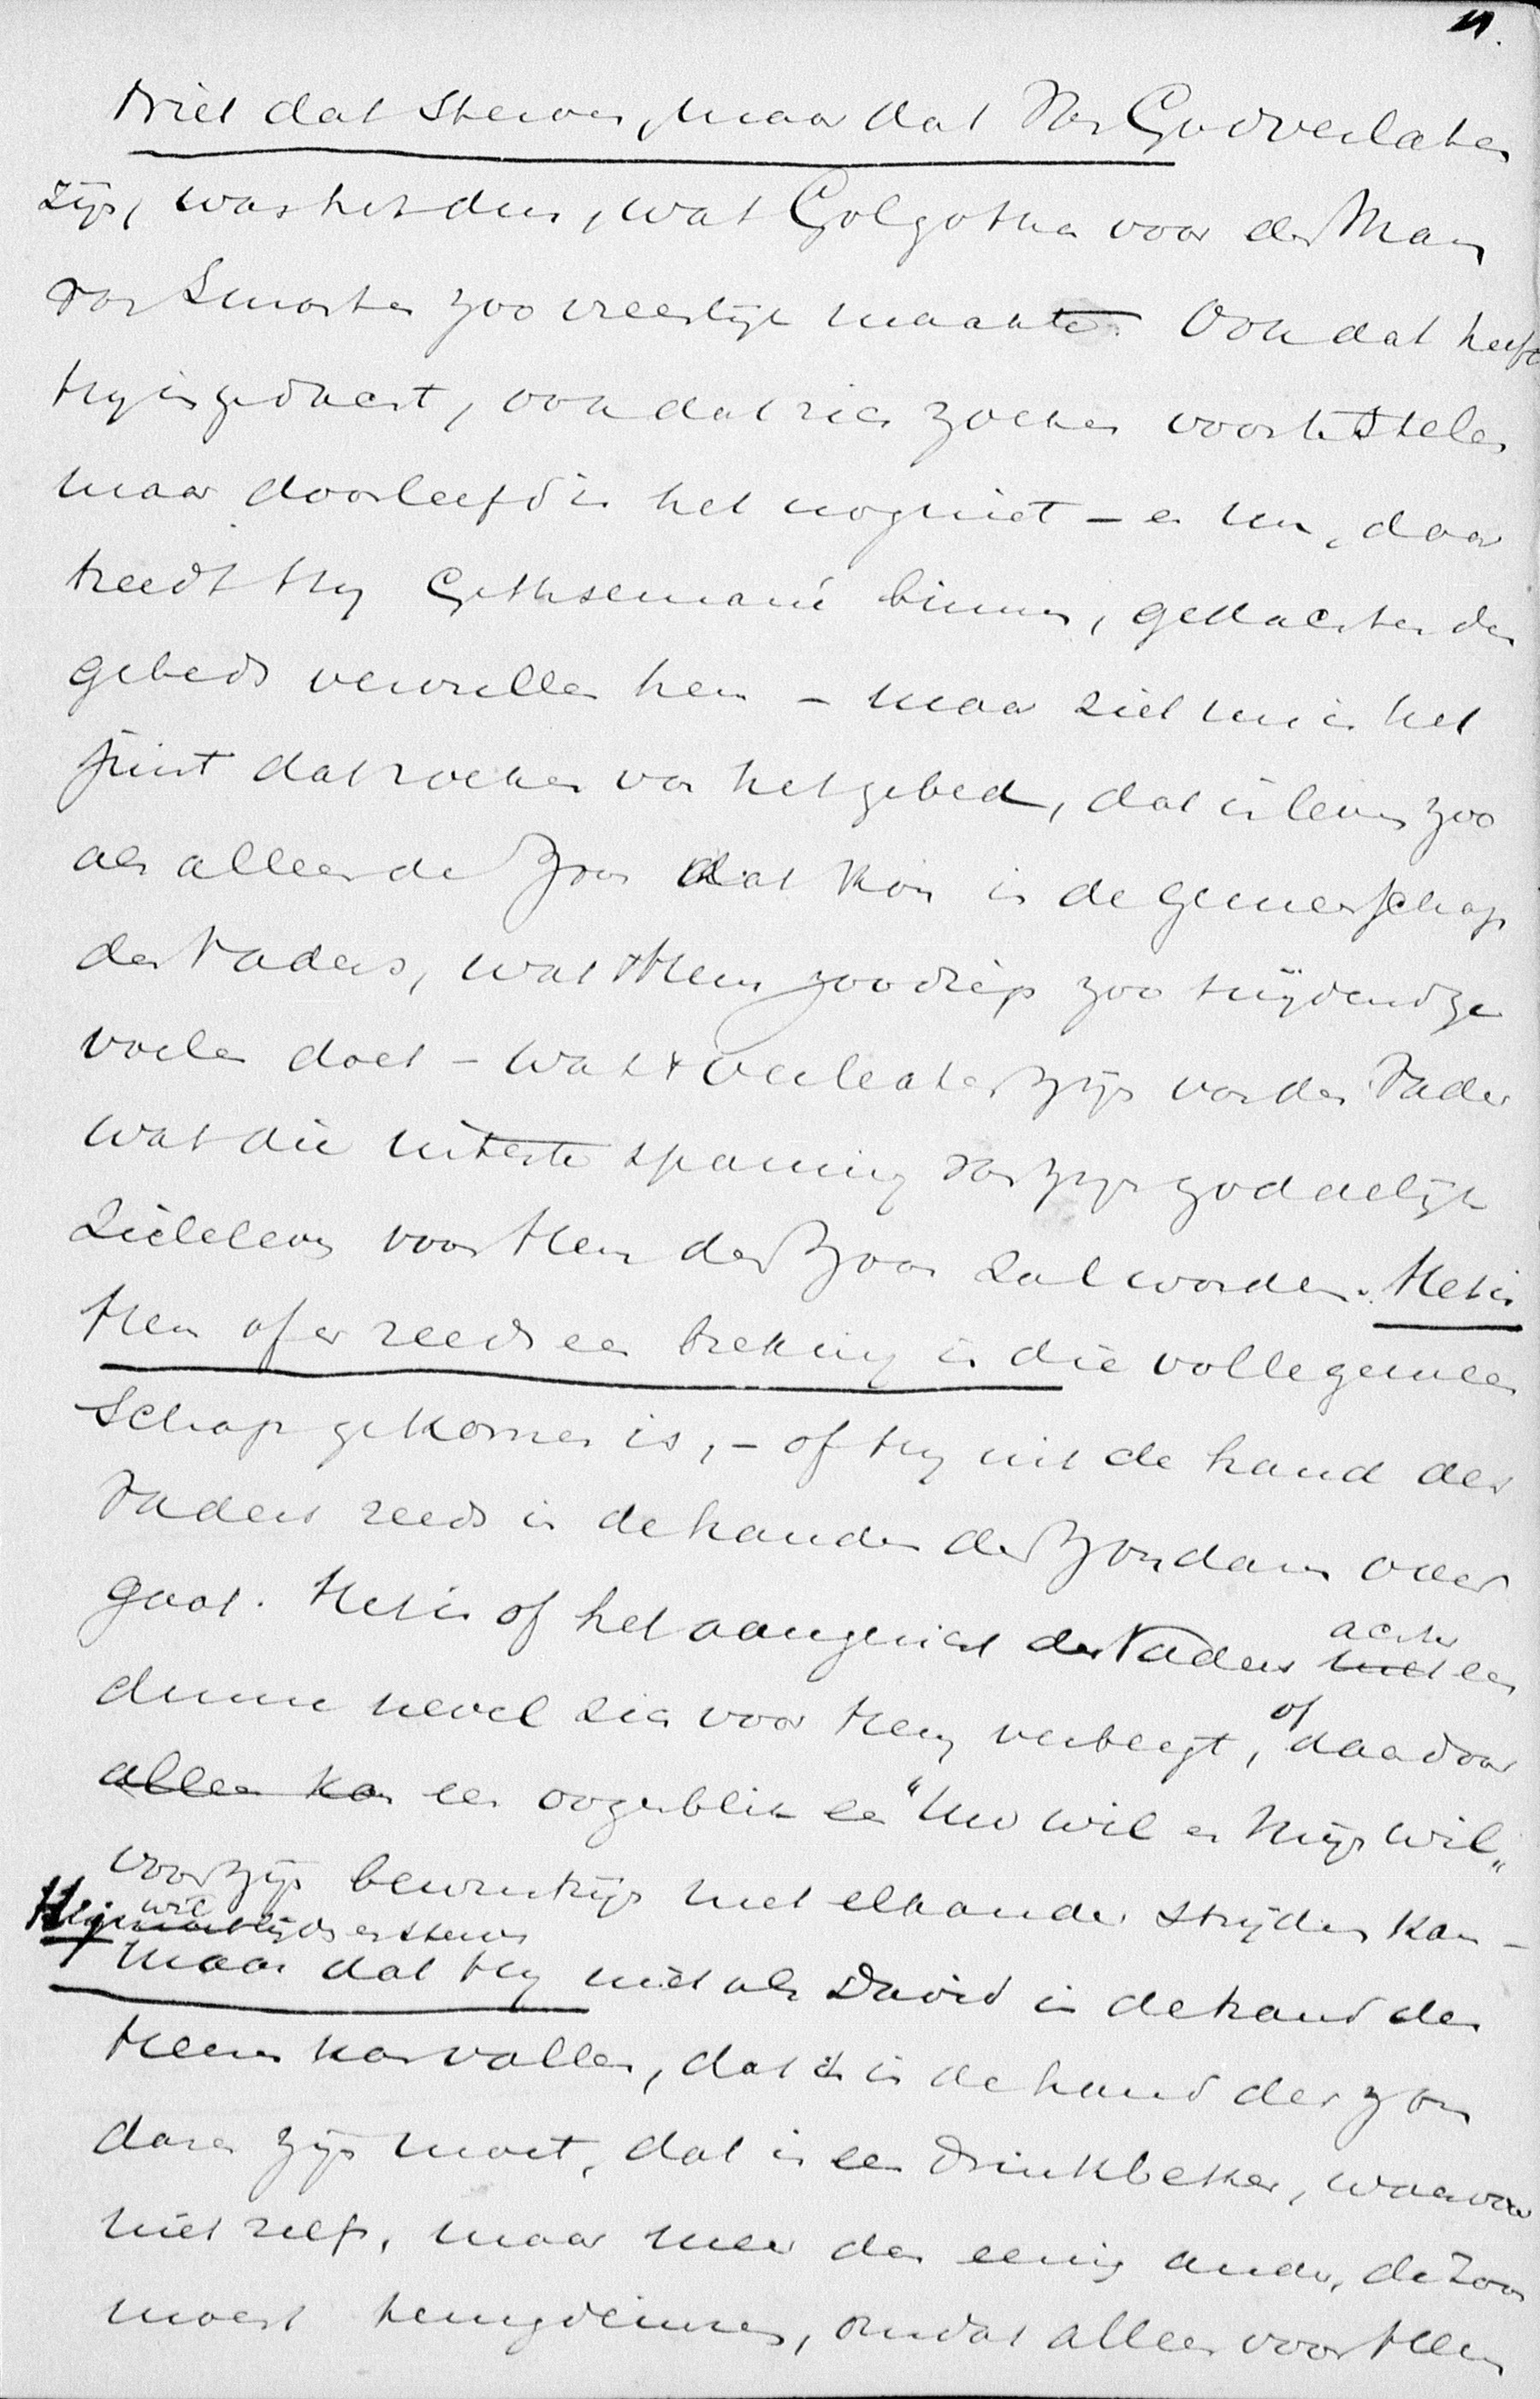 11.
Niet dat sterven, maar dat Van God verlaten
zijn, was het dus, wat Golgotha voor den Man
van Smarten zoo vreeslijk maakte. Ook dat heeft
Hij ingedacht, ook dat zich zoeken voor te stellen
maar doorleefd is het nog niet – en nu, daar
treedt Hij Gethsemané binnen, gedachten des
gebeds vervullen hem – maar ziet nu is het
juist dat zoeken van het gebed, dat inleven zoo
als alleen de Zoon dat kon in de gemeenschap
des Vaders, wat Hem zoo diep zoo snijdend ge
voelen doet – wat verlaten zijn van den Vader
wat die uiterste spanning van zijn goddelijk
Zieleleven voor Hem den Zoon zal worden. Het is
Hem of er reeds een breking in die volle gemeen
schap gekomen is, – of Hij uit de hand des
Vaders reeds in de handen der Zondaren over
gaat. Het is of het aangezicht des Vaders achter een
dunne nevel zich voor Hem verbergt, of daardoor
alleen kan een oogenblik een "Uw wil en Mijn wil"
voor zijn bewustzijn met elkander strijden kan –
Hij wil lijden en sterven
maar dat Hij niet als David in de hand des
Heeren kan vallen, dat is in de hand der zon
daren zijn moet, dat is een drinkbeker, waarvoor
niet zelf, maar meer dan eenig ander, de Zoon
moest terugdeinzen, omdat alleen voor Hem